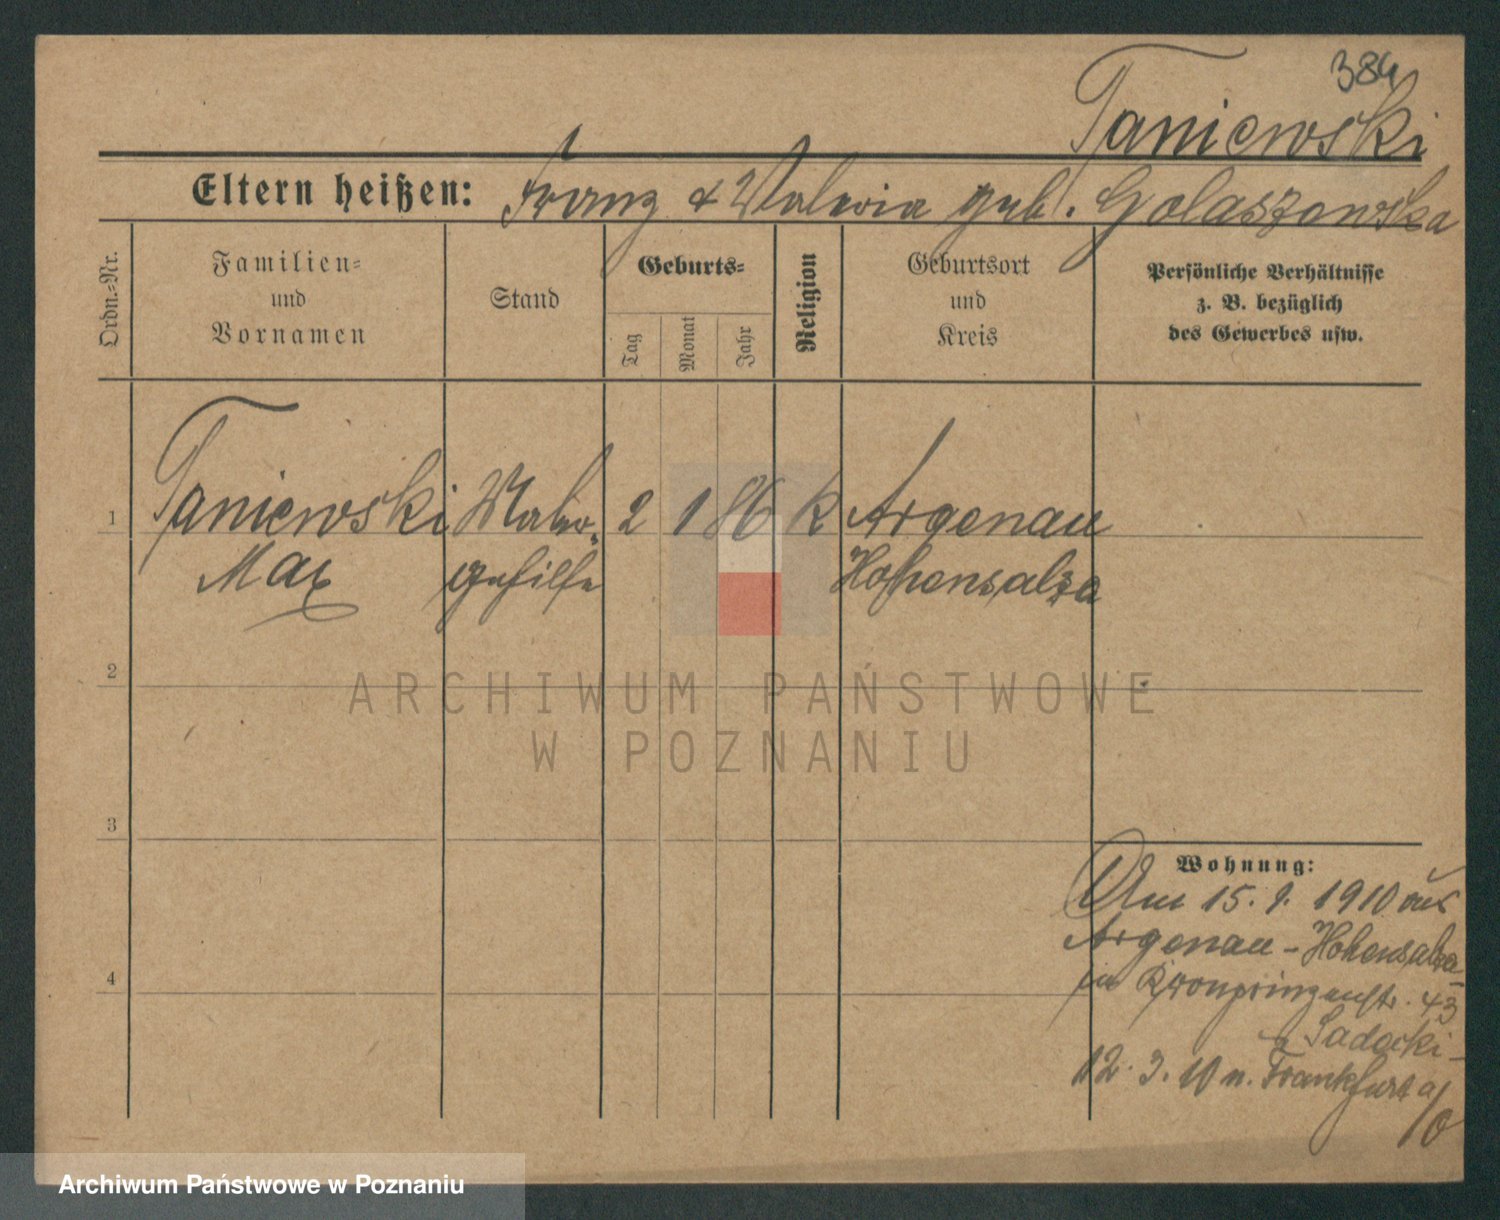 384
Taniewski
Eltern heißen: Franz & Valeria geb. Golaszewska
Ordn.-Nr.
Familien-
und
Vornamen
Stand
Geburts-
Tag
Monat
Jahr
Religion
Geburtsort
und
Kreis
Persönliche Verhältnisse
z. B. bezüglich
des Gewerbes usw.
1 Taniewski Maler- 2 1 86 K Argenau
Max gehilfe Hohensalza
2
ARCHIWUM PAŃSTWOWE
W POZNANIU
3
Wohnung:
Am 15. 1. 1910 aus
Argenau - Hohensalza
4
in Kronprinzenstr. 43
Sadocki -
12. 3. 10 n. Frankfurt a/O
Archiwum Państwowe w Poznaniu